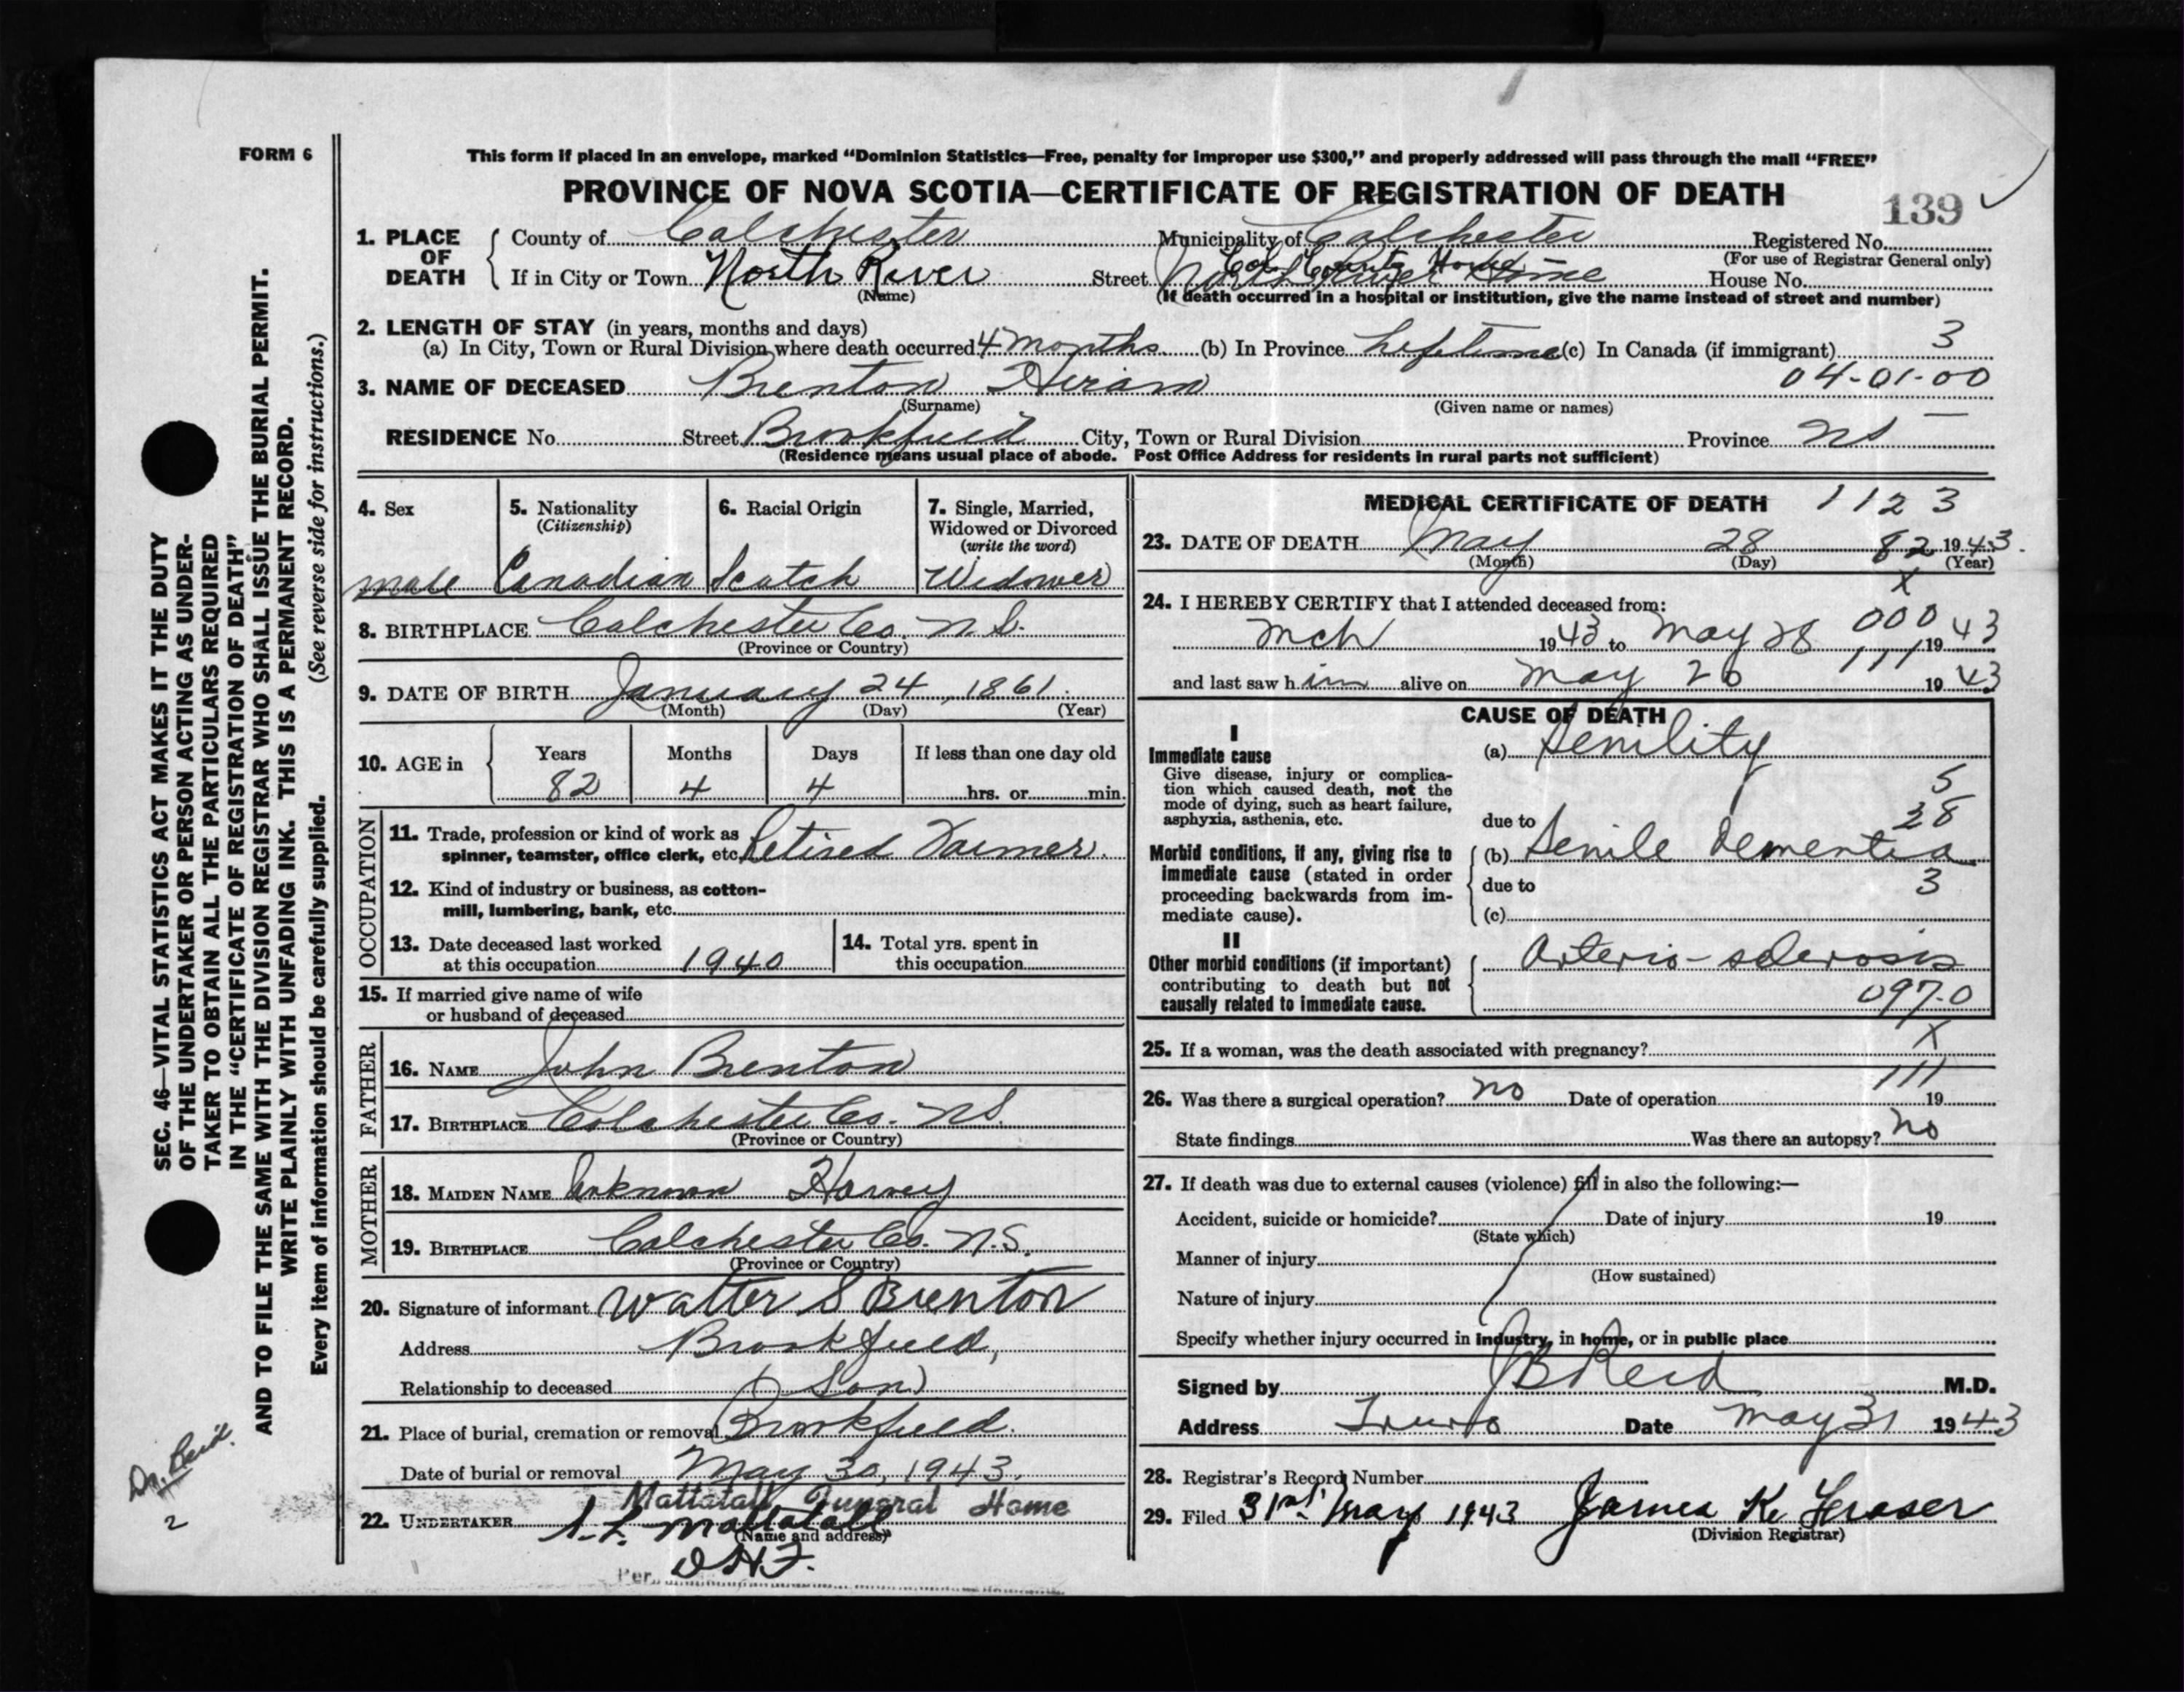 FORM 6
This form if placed in an envelope, marked “Dominion Statistics—Free, penalty for improper use $300,” and properly addressed will pass through the mail “FREE”
PROVINCE OF NOVA SCOTIA—CERTIFICATE OF REGISTRATION OF DEATH
139
1. PLACE OF DEATH County of Colchester Municipality of Colchester Registered No.
(For use of Registrar General only)
If in City or Town North River Street North River Home Col. County Home House No.
(Name) (If death occurred in a hospital or institution, give the name instead of street and number)
2. LENGTH OF STAY (in years, months and days)
(a) In City, Town or Rural Division where death occurred 4 months (b) In Province Lifetime (c) In Canada (if immigrant) 3
04-01-00
3. NAME OF DECEASED Brenton Hiram
(Surname) (Given name or names)
RESIDENCE No. Street Brookfield City, Town or Rural Division Province NS
(Residence means usual place of abode. Post Office Address for residents in rural parts not sufficient)
4. Sex male
5. Nationality (Citizenship) Canadian
6. Racial Origin Scotch
7. Single, Married, Widowed or Divorced (write the word) Widower
8. BIRTHPLACE Colchester Co. N.S.
(Province or Country)
9. DATE OF BIRTH January 24, 1861.
(Month) (Day) (Year)
10. AGE in Years Months Days If less than one day old
82 4 4 hrs. or min.
OCCUPATION
11. Trade, profession or kind of work as spinner, teamster, office clerk, etc. Retired Farmer.
12. Kind of industry or business, as cotton-mill, lumbering, bank, etc.
13. Date deceased last worked at this occupation 1940
14. Total yrs. spent in this occupation
15. If married give name of wife or husband of deceased
FATHER
16. NAME John Brenton
17. BIRTHPLACE Colchester Co. NS.
(Province or Country)
MOTHER
18. MAIDEN NAME Unknown Harvey
19. BIRTHPLACE Colchester Co. N.S.
(Province or Country)
20. Signature of informant Walter S Brenton
Address Brookfield,
Relationship to deceased (Son)
21. Place of burial, cremation or removal Brookfield.
Date of burial or removal May 30, 1943.
Mattatall Funeral Home
22. UNDERTAKER Mattatall
(Name and address)
Per
MEDICAL CERTIFICATE OF DEATH 1123
23. DATE OF DEATH May 28 82 1943.
(Month) (Day) (Year)
X
24. I HEREBY CERTIFY that I attended deceased from:
000
mch 1943 to May 28 1943
111
and last saw him alive on May 26 1943
CAUSE OF DEATH
I
Immediate cause
Give disease, injury or complication which caused death, not the mode of dying, such as heart failure, asphyxia, asthenia, etc.
(a) Senility
5
28
due to
Morbid conditions, if any, giving rise to immediate cause (stated in order proceeding backwards from immediate cause).
(b) Senile Dementia
due to 3
(c)
II
Other morbid conditions (if important) contributing to death but not causally related to immediate cause.
Arterio-sclerosis
097-0
X
25. If a woman, was the death associated with pregnancy?
111
26. Was there a surgical operation? no Date of operation 19
State findings Was there an autopsy? no
27. If death was due to external causes (violence) fill in also the following:—
Accident, suicide or homicide? Date of injury 19
(State which)
Manner of injury
(How sustained)
Nature of injury
Specify whether injury occurred in industry, in home, or in public place
Signed by JB Reid M.D.
Address Truro Date May 31 1943
28. Registrar's Record Number
29. Filed 31st May 1943 James K. Fraser
(Division Registrar)
SEC. 46—VITAL STATISTICS ACT MAKES IT THE DUTY
OF THE UNDERTAKER OR PERSON ACTING AS UNDER-
TAKER TO OBTAIN ALL THE PARTICULARS REQUIRED
IN THE “CERTIFICATE OF REGISTRATION OF DEATH”
AND TO FILE THE SAME WITH THE DIVISION REGISTRAR WHO SHALL ISSUE THE BURIAL PERMIT.
WRITE PLAINLY WITH UNFADING INK. THIS IS A PERMANENT RECORD.
Every item of information should be carefully supplied. (See reverse side for instructions.)
Dr. Reid.
2